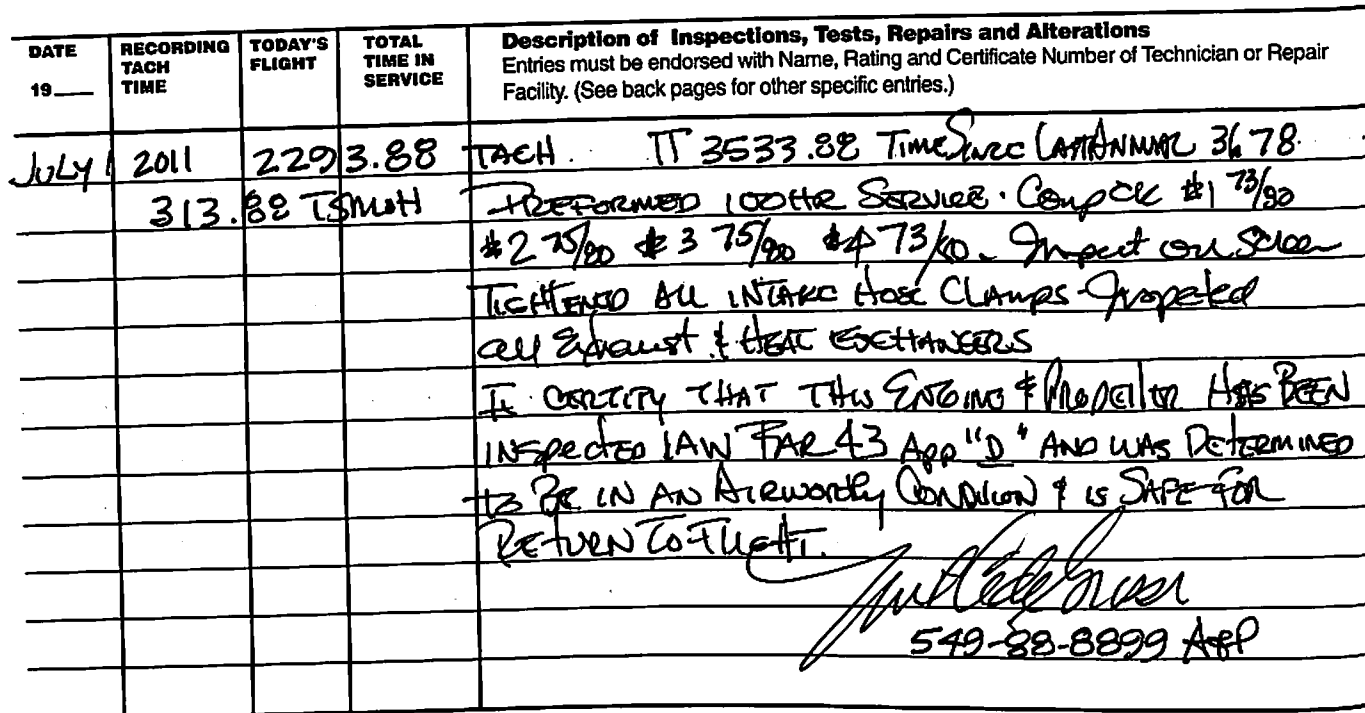 DATE
19___
RECORDING TACH TIME
TODAY'S FLIGHT
TOTAL TIME IN SERVICE
Description of Inspections, Tests, Repairs and Alterations
Entries must be endorsed with Name, Rating and Certificate Number of Technician or Repair
Facility. (See back pages for other specific entries.)
JULY 1 2011 2293.88 TACH. TT 3533.88 Time Since Last Annual 36.78
313.88 TSMOH PREFORMED 100HR SERVICE. Comp CK #1 73/80
#2 75/80 #3 75/80 #4 73/80. Inspect Screen
TIGHTENED ALL INTAKE HOSE CLAMPS - Inspected
all Exhaust & HEAT EXCHANGERS
I CERTIFY THAT THIS ENGINE & PROPELLER HAS BEEN
INSPECTED IAW FAR 43 App "D" AND WAS DETERMINED
to BE IN AN AIRWORTHY CONDITION & IS SAFE FOR
RETURN TO FLIGHT.
549-88-8899 A&P